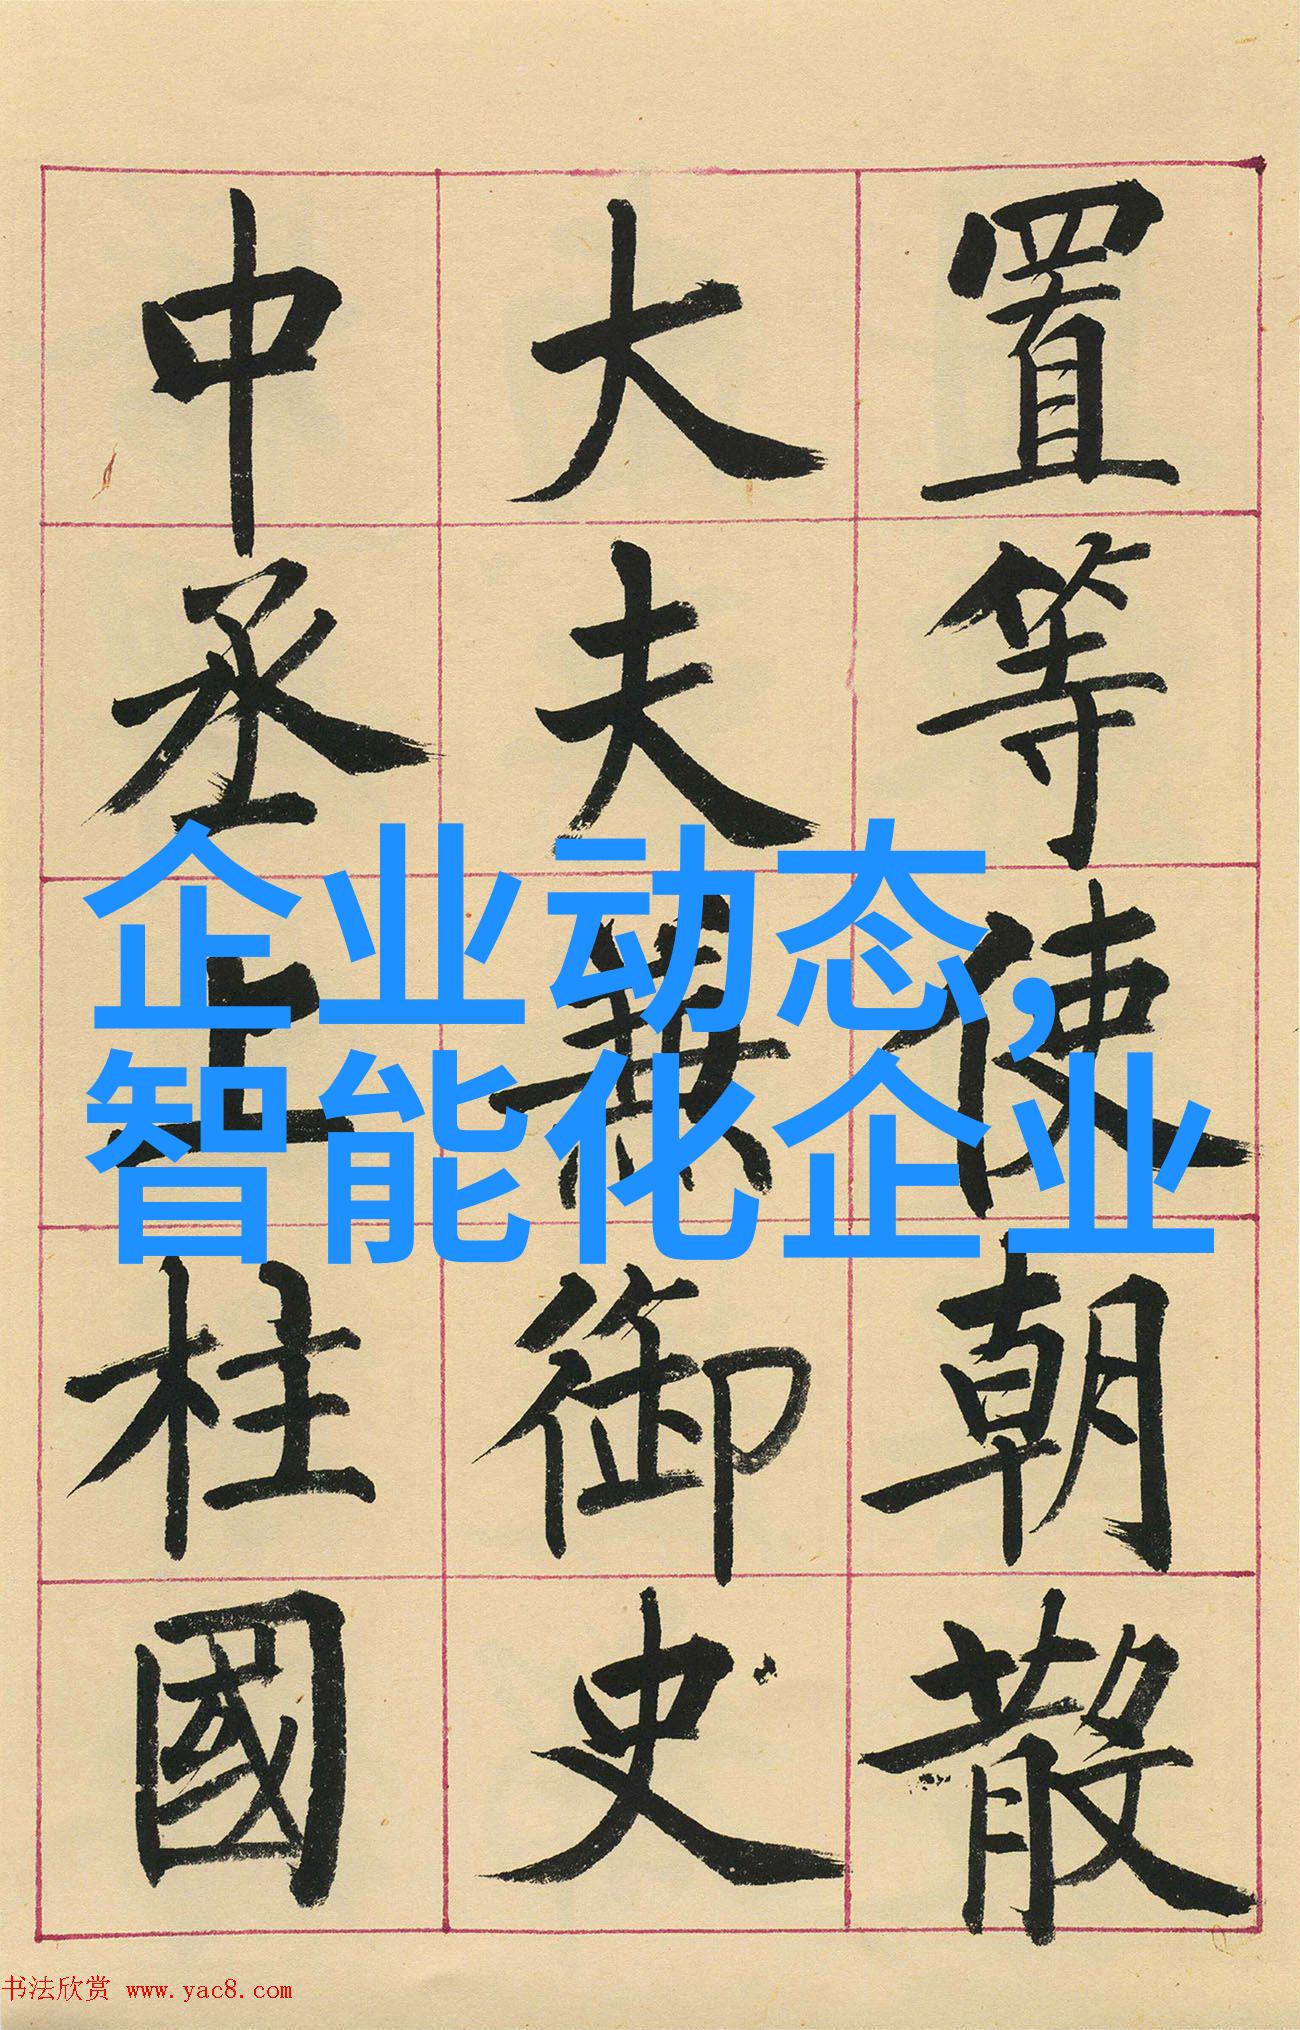 置等使朝散
大夫兼御史
中丞上柱國
企业动态,
智能化企业
书法欣赏 www.yac8.com